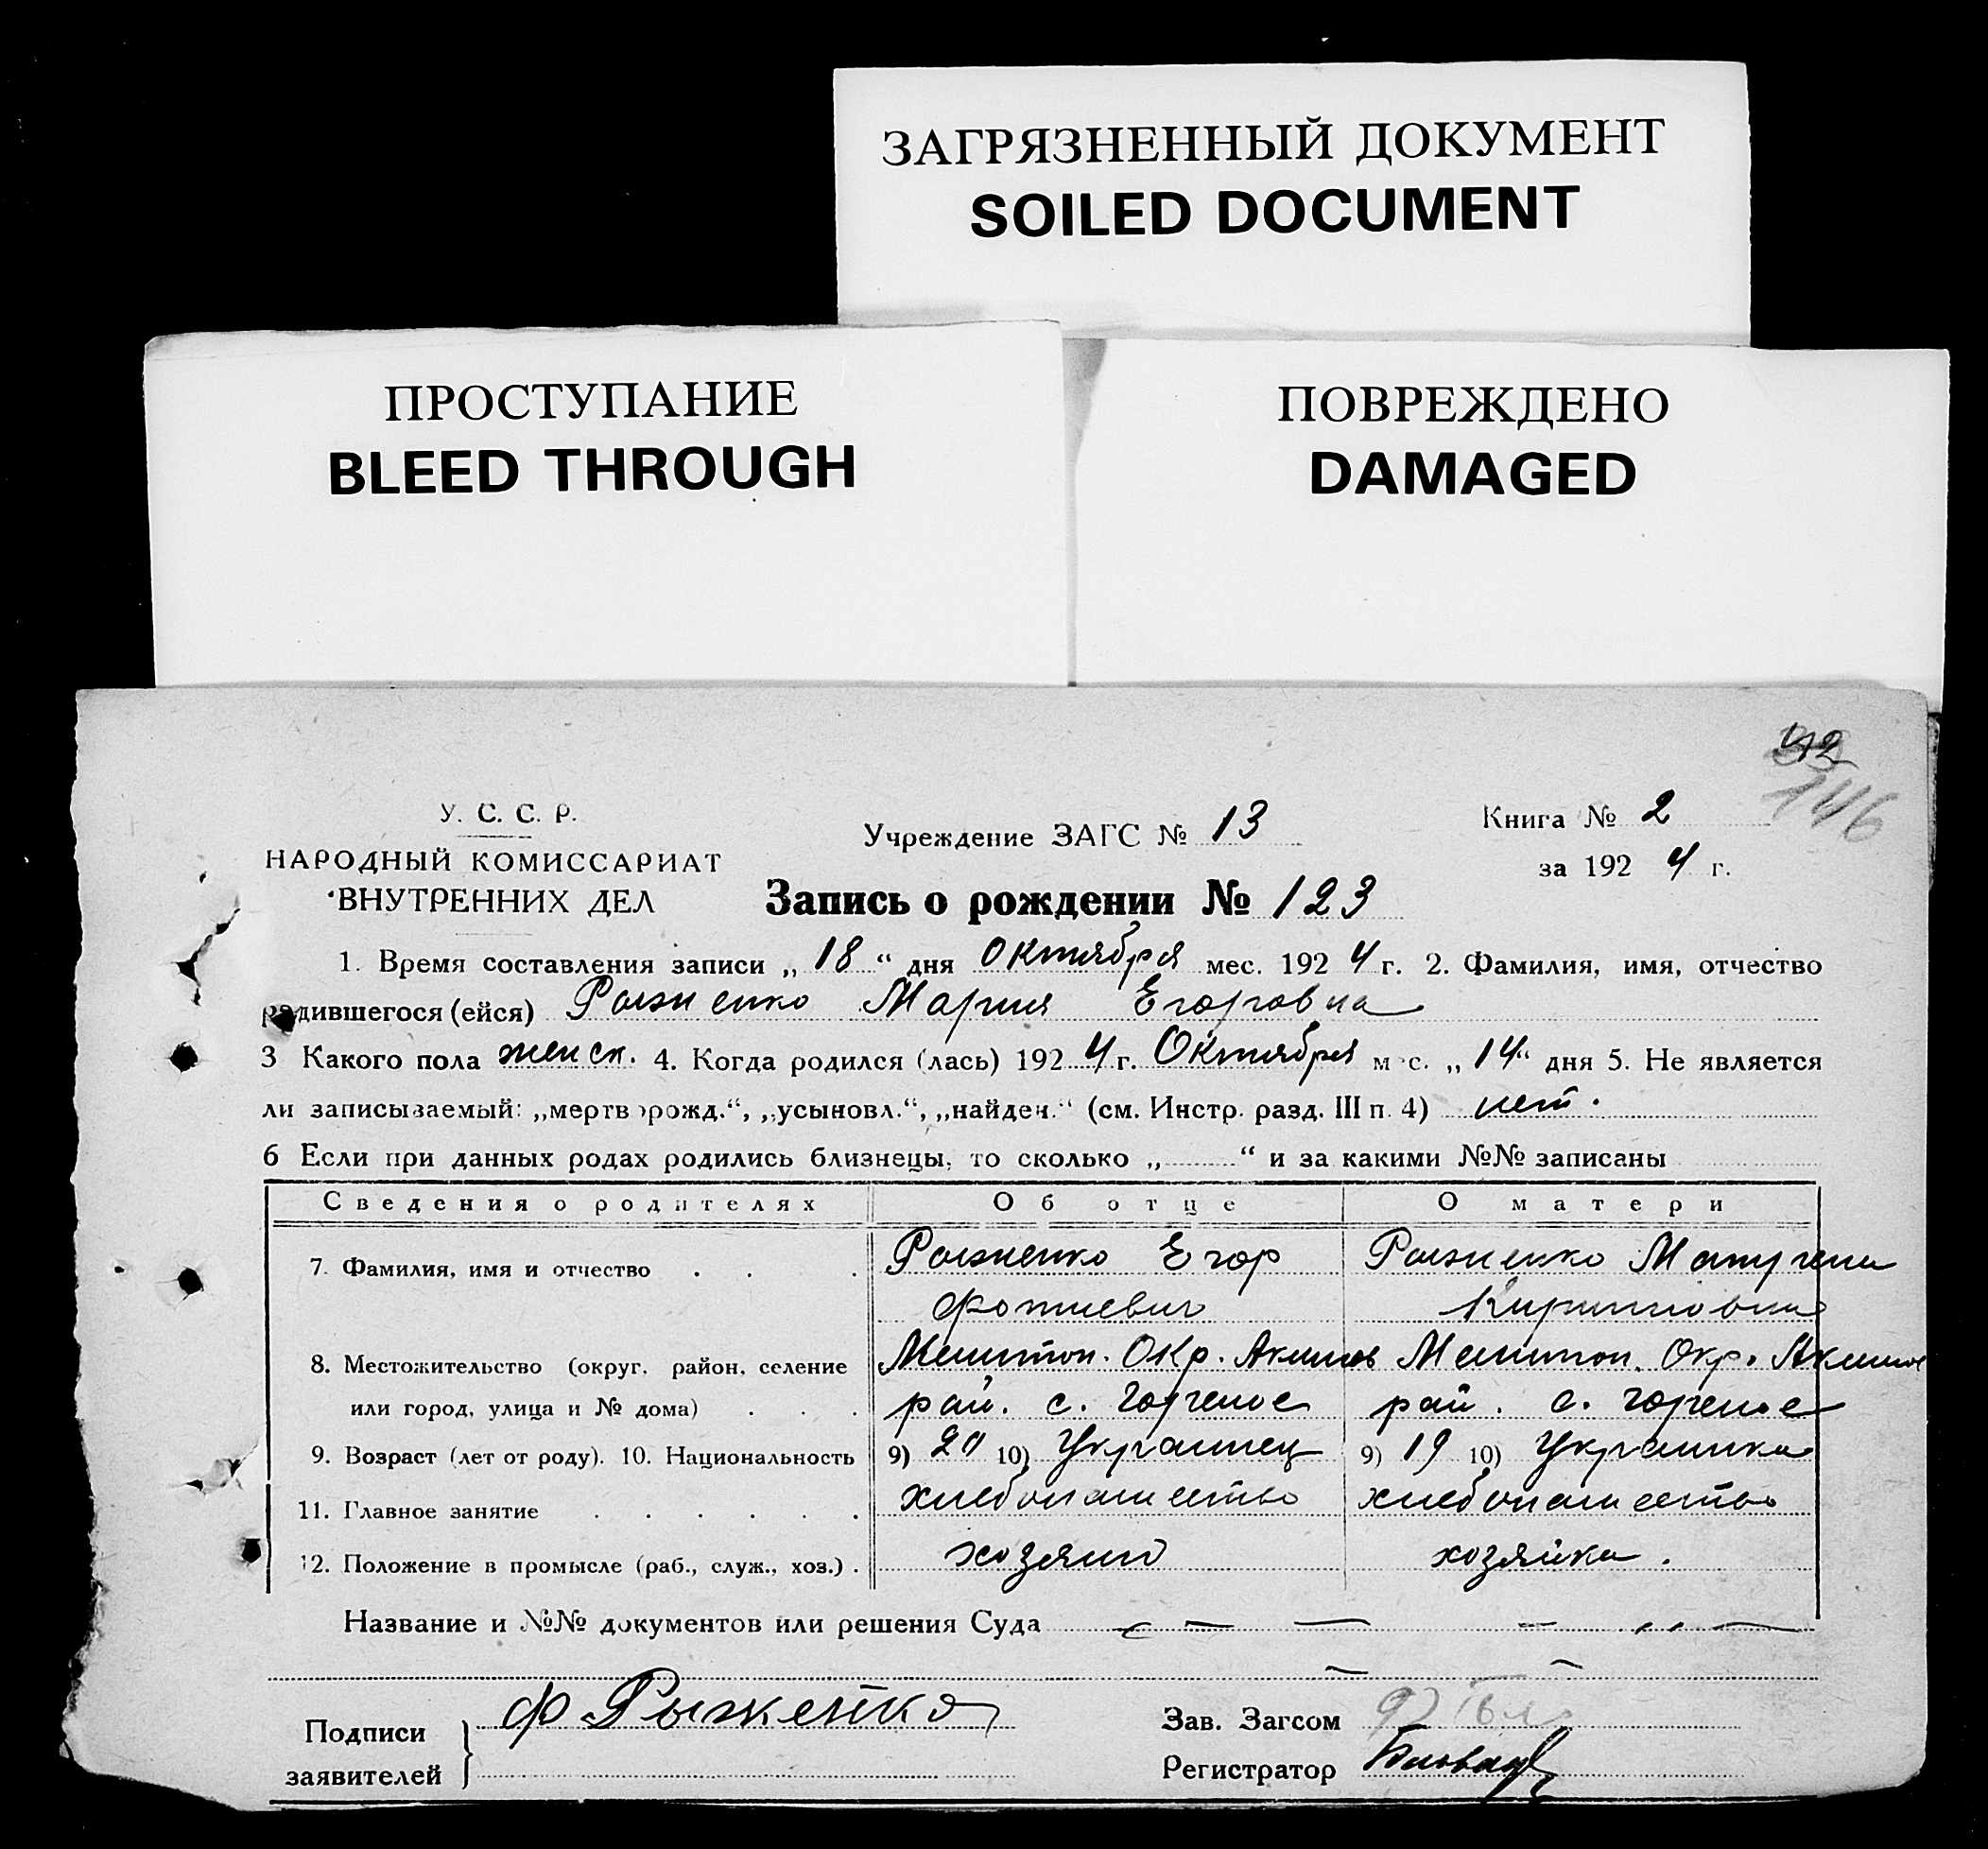 ЗАГРЯЗНЕННЫЙ ДОКУМЕНТ
SOILED DOCUMENT
ПРОСТУПАНИЕ
BLEED THROUGH
ПОВРЕЖДЕНО
DAMAGED
42
146
У. С. С. Р.
НАРОДНЫЙ КОМИССАРИАТ
ВНУТРЕННИХ ДЕЛ
Учреждение ЗАГС № 13
Книга № 2
за 1924 г.
Запись о рождении № 123
1. Время составления записи „18“ дня Октября мес. 1924 г. 2. Фамилия, имя, отчество
родившегося (ейся) Рыженко Мария Егоровна
3 Какого пола женск. 4. Когда родился (лась) 1924 г. Октября мес. „14“ дня 5. Не является
ли записываемый: „мертворожд.“, „усыновл.“, „найден.“ (см. Инстр. разд. III п. 4) нет.
6 Если при данных родах родились близнецы, то сколько „ “ и за какими №№ записаны
Сведения о родителях Об отце О матери
7. Фамилия, имя и отчество Рыженко Егор Рыженко
Фотиевич
8. Местожительство (округ, район, селение Мелитоп. Окр. Акимов Мелитоп. Окр. Акимов
или город, улица и № дома) рай. с. Горелое рай. с. Горелое
9. Возраст (лет от роду). 10. Национальность 9) 20 10) Украинец 9) 19 10) Украинка
11. Главное занятие хлебопашество хлебопашество
12. Положение в промысле (раб., служ., хоз.) хозяин хозяйка.
Название и №№ документов или решения Суда
Подписи
заявителей
Ф Рыженко
Зав. Загсом
Регистратор